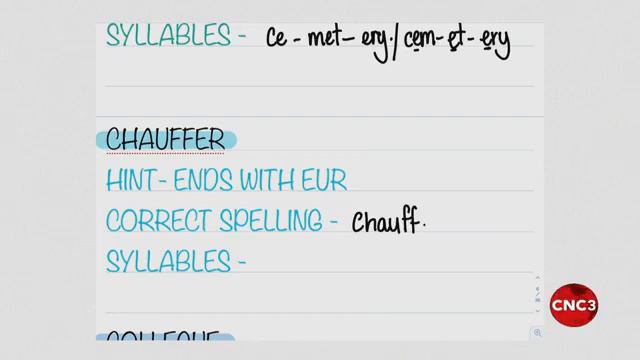 SYLLABLES - ce - met - ery. / cem - et - ery
CHAUFFER
HINT - ENDS WITH EUR
CORRECT SPELLING - chauff.
SYLLABLES -
CNC3